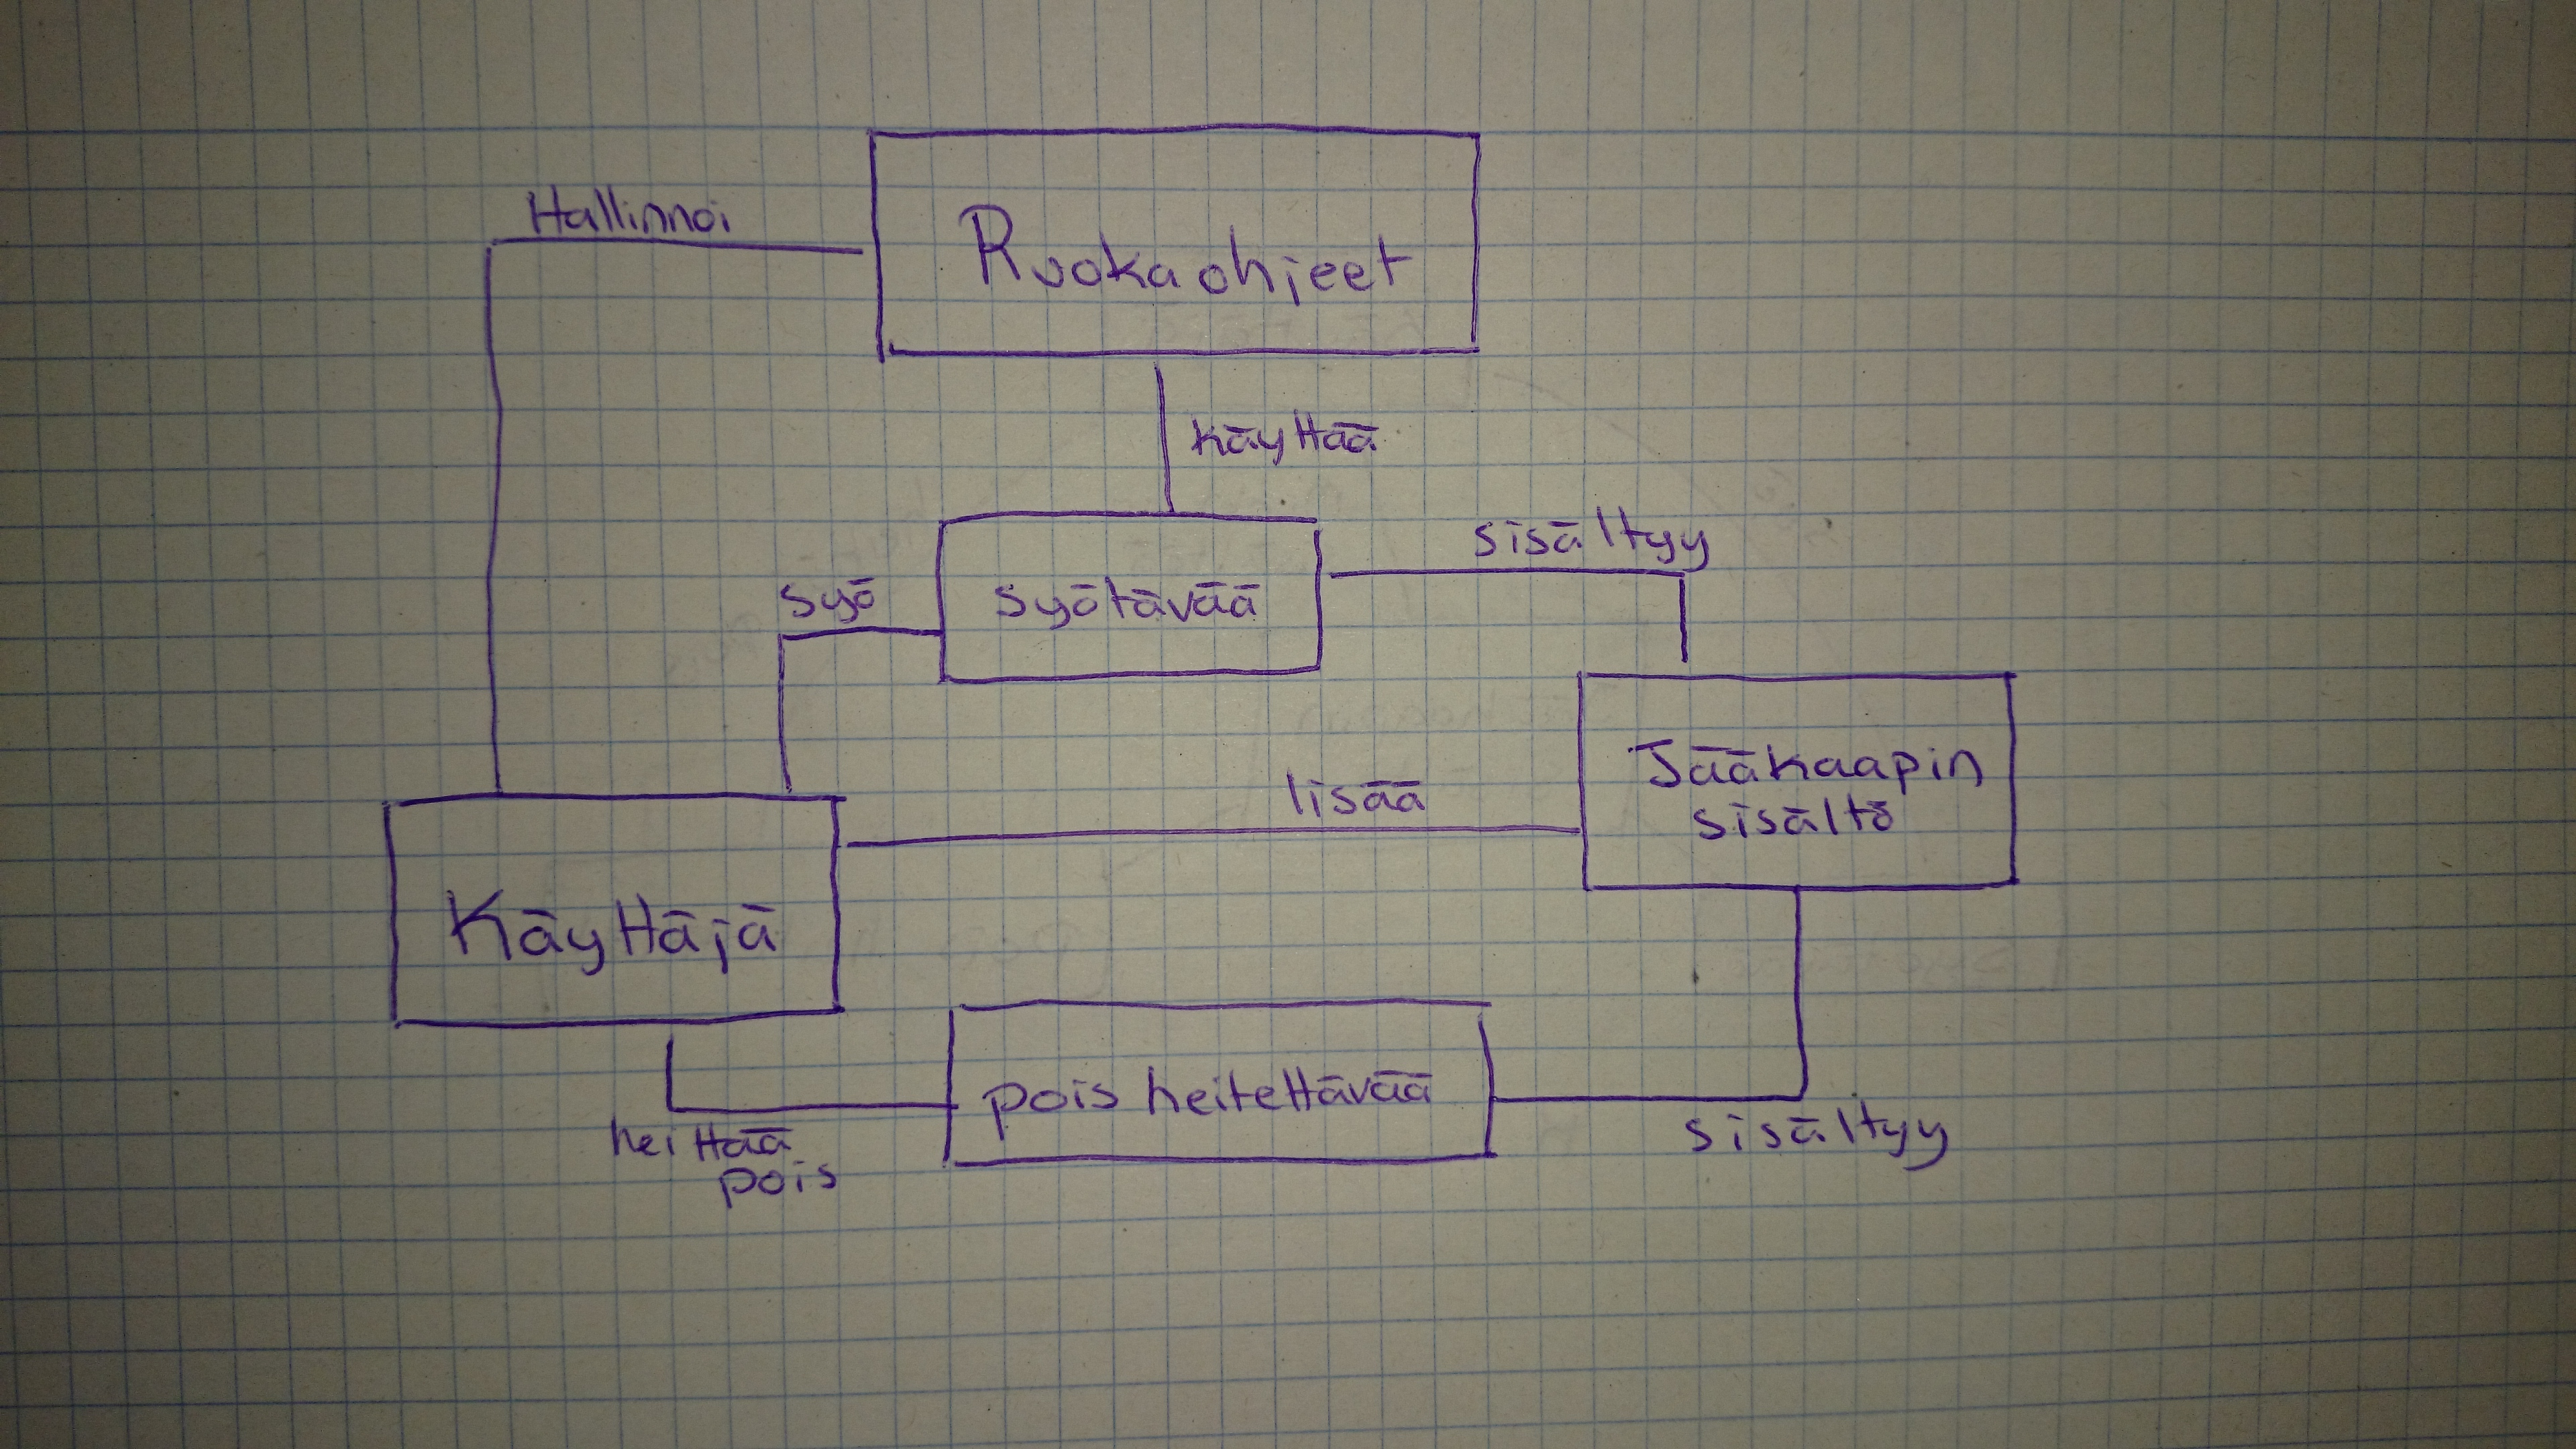 Hallinnoi
Ruokaohjeet
käyttää
sisältyy
syö
syötävää
Jääkaapin
sisältö
lisää
Käyttäjä
pois heitettävää
heittää
pois
sisältyy